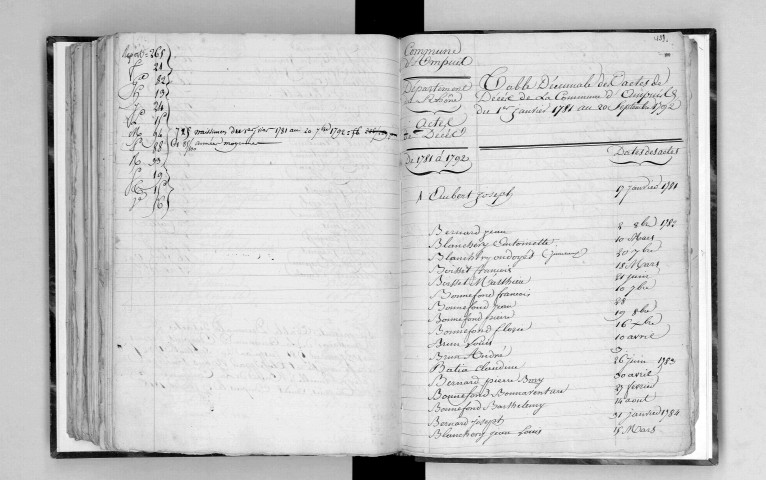 Report 265
21
82
13
24
15
94
88
33
19
15
56
785 naissances du 1er janvier 1781 au 20 7bre 1792
année moyenne
439
Commune
d'Ampuis
Département
du Rhône
Actes
de Décès
De 1781 à 1792
Table Décennale des actes de
Décès de La Commune d'Ampuis
du 1er janvier 1781 au 20 Septembre 1792
Dates des actes
A Aubert Joseph 17 janvier 1781
Bernard jean 2 8bre 1782
Blanchery Antoinette 10 Mars
Blanchery 20 7bre
Boisset francois 15 Mars
Boisset Mathieu 21 juin
Bonnefond francois 10 7bre
Bonnefond jean 28
Bonnefond pierre 19 8bre
Bonnefond fleurie 16 Xbre
Brun Louis 10 avril
Brun André 3
Batia claudine 26 juin 1783
Bernard pierre Bory 30 avril
Bonnefond Bonnaventure 27 fevrier
Bonnefond Barthelemy 14 aout
Bernard Joseph 31 janvier 1784
Blanchery jean Louis 15 Mars